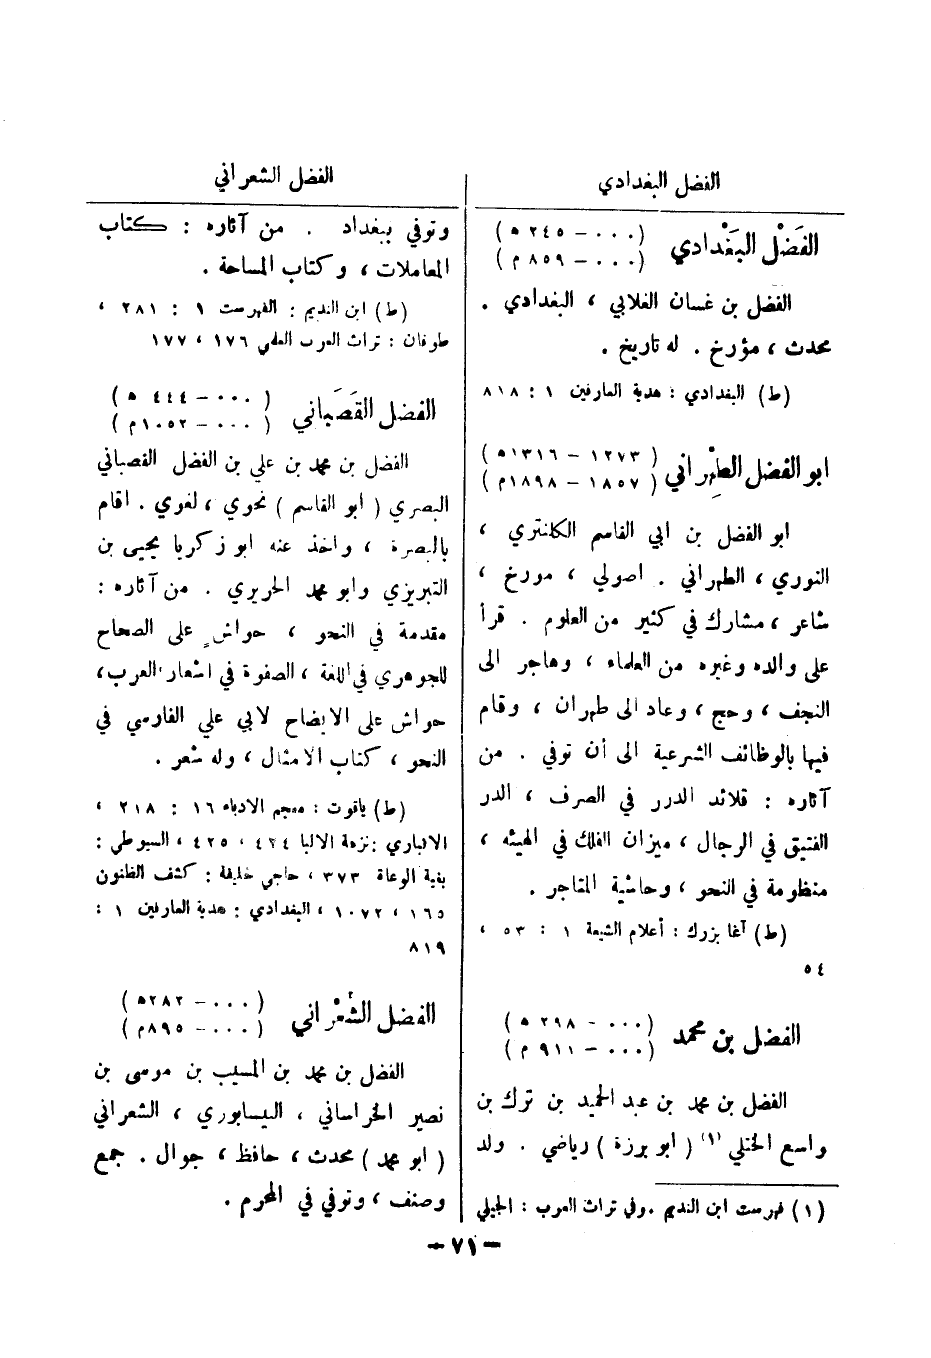 الفضل البغدادي
الفَضْل البَغْدادي (٠٠٠ – ٢٤٥ ه)
(٠٠٠ – ٨٥٩ م)
الفضل بن غسان الغلابي ، البغدادي .
محدث ، مؤرخ . له تاريخ .
(ط) البغدادي : هدية العارفين ١ : ٨١٨
ابو الفضل الطِهْراني (١٢٧٣ – ١٣١٦ه)
(١٨٥٧ – ١٨٩٨م)
ابو الفضل بن ابي القاسم الكلنتري ،
النوري ، الطهراني . اصولي ، مورخ ،
شاعر ، مشارك في كثير من العلوم . قرأ
على والده وغيره من العلماء ، وهاجر الى
النجف ، وحج ، وعاد الى طهران ، وقام
فيها بالوظائف الشرعية الى أن توفي . من
آثاره : قلائد الدرر في الصرف ، الدر
الفتيق في الرجال ، ميزان الفلك في الهيئه ،
منظومة في النحو ، وحاشية المتاجر .
(ط) آغا بزرك : أعلام الشيعة ١ : ٥٣ ،
٥٤
الفضل بن محمد (٠٠٠ – ٢٩٨ ه)
(٠٠٠ – ٩١١ م)
الفضل بن محمد بن عبد الحميد بن ترك بن
واسع الختلي (١) ( ابو برزة ) رياضي . ولد
(١) فهرست ابن النديم . وفي تراث العرب : الجيلي
الفضل الشعراني
وتوفي ببغداد . من آثاره : كتاب
المعاملات ، وكتاب المساحة .
(ط) ابن النديم : الفهرست ١ : ٢٨١ ،
طوقان : تراث العرب العلمي ١٧٦ ، ١٧٧
الفضل القَصَباني (٠٠٠ – ٤٤٤ ه)
(٠٠٠ – ١٠٥٢م)
الفضل بن محمد بن علي بن الفضل القصباني
البصري ( ابو القاسم ) نحوي ، لغوي . اقام
بالبصرة ، واخذ عنه ابو زكريا يحيى بن
التبريزي وابو محمد الحريري . من آثاره :
مقدمة في النحو ، حواشٍ على الصحاح
للجوهري في اللغة ، الصفوة في اشعار العرب،
حواش على الايضاح لابي علي الفارسي في
النحو ، كتاب الامثال ، وله شعر .
(ط) ياقوت : معجم الادباء ١٦ : ٢١٨ ،
الانباري : نزهة الالبا ٤٢٤ ، ٤٢٥ ، السيوطي :
بغية الوعاة ٣٧٣ ، حاجي خليفة : كشف الظنون
١٦٥ ، ١٠٧٢ ، البغدادي : هدية العارفين ١ :
٨١٩
الفضل الشَعْراني (٠٠٠ – ٢٨٢ه)
(٠٠٠ – ٨٩٥م)
الفضل بن محمد بن المسيب بن موسى بن
نصير الخراساني ، اليسابوري ، الشعراني
( ابو محمد ) محدث ، حافظ ، جوال . جمع
وصنف ، وتوفي في المحرم .
– ٧١ –